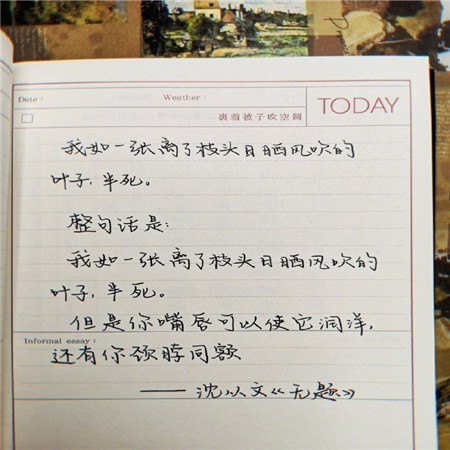 Date :
Weather :
TODAY
裹着被子吹空調
我如一张离了枝头日晒风吹的
叶子,半死。
整句话是:
我如一张离了枝头日晒风吹的
叶子,半死。
但是你嘴唇可以使它润泽,
Informal essay :
还有你颈脖同额
——沈从文《无题》